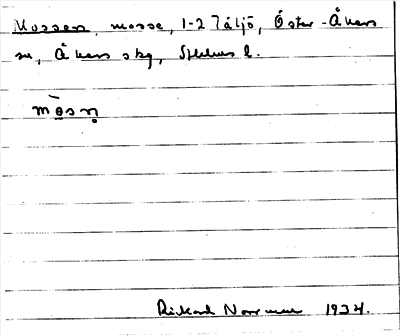 Mossen, mosse, 1-2 Täljö, Öster-Åkers
sn, Åkers skg, Sthlms l.
mòsṇ
Rickard Norrman 1934.